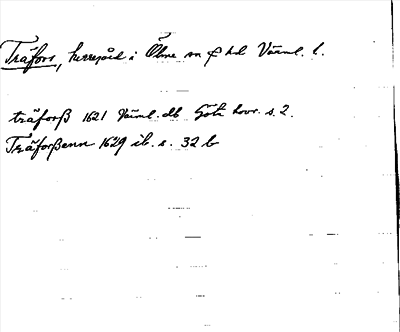 Träfors, herregård i Ölme sn o hd Värml. l.
träforß 1621 Värml. db Göta hovr. s. 2.
Träforßenn 1629 ib. s. 32 b